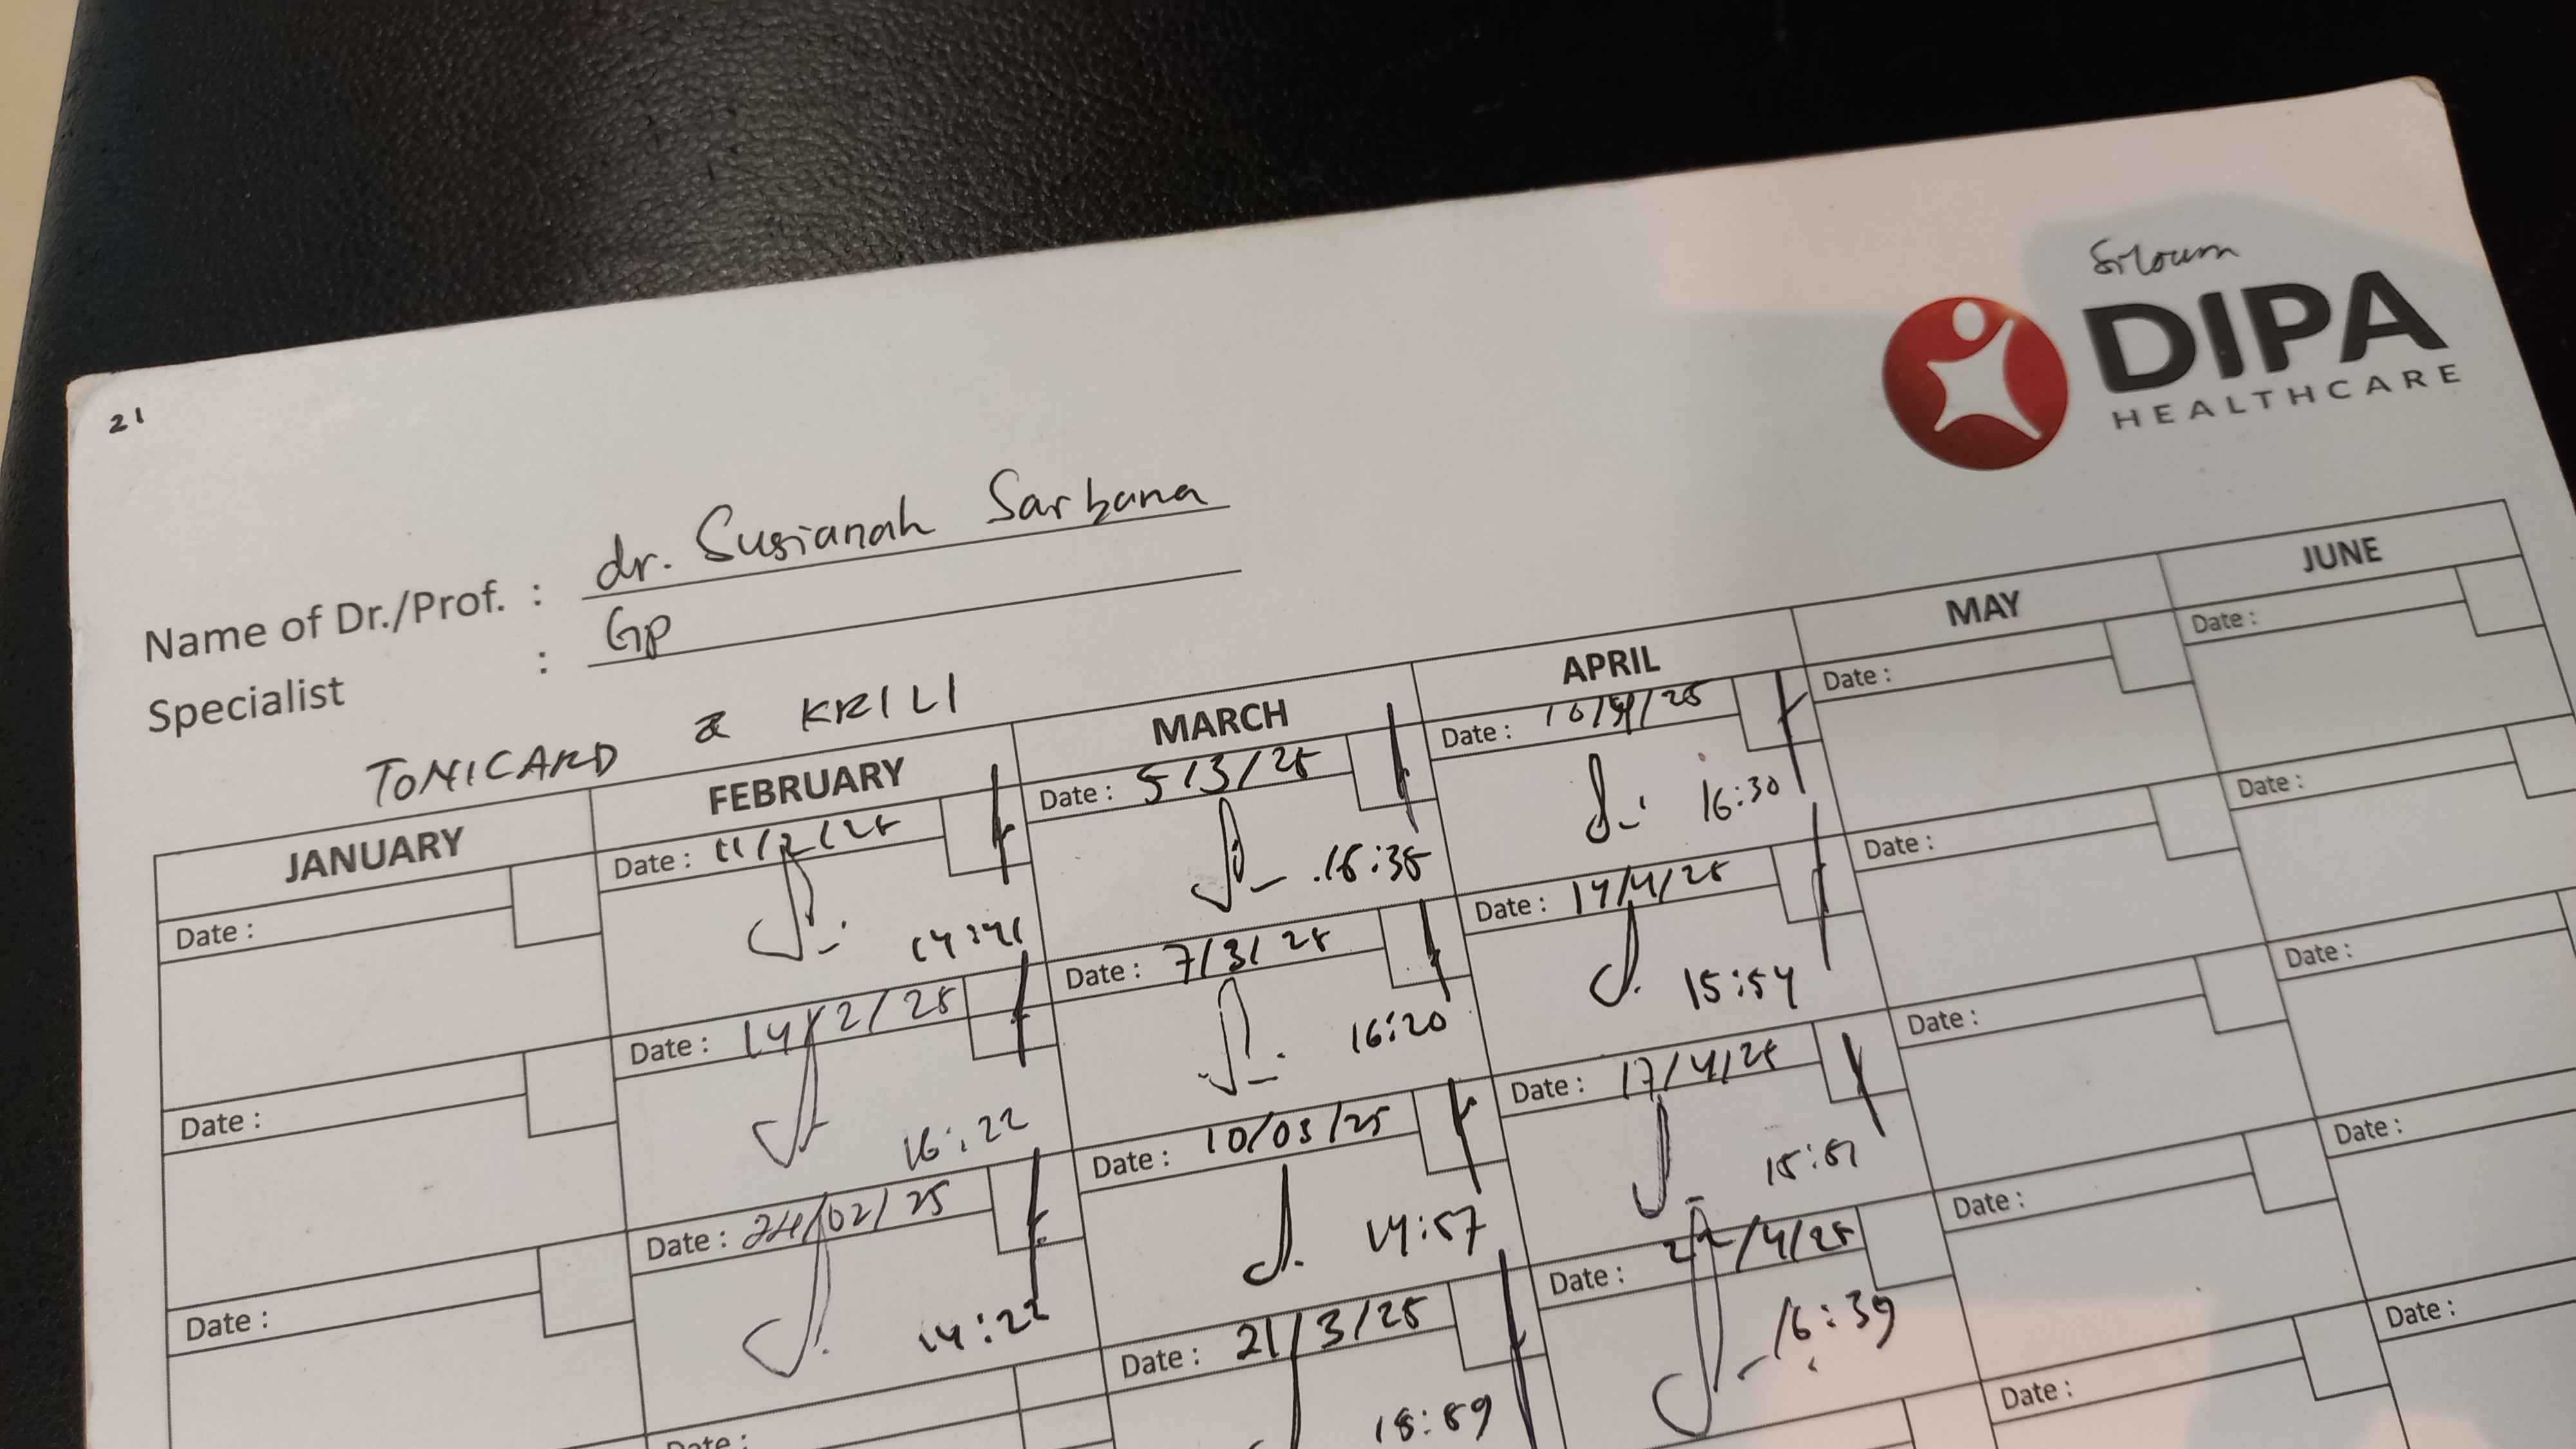 21
DIPA
HEALTHCARE
Name of Dr./Prof. : dr. Susianah Sarbana
Specialist : Gp
TONICARD & KRILI
JANUARY FEBRUARY MARCH APRIL MAY JUNE
Date : Date : 11/2/25 Date : 5/3/25 Date : 10/4/25 Date : Date :
14:41 15:35 16:30
Date : Date : 14/2/25 Date : 7/3/25 Date : 14/4/25 Date : Date :
16:22 16:20 15:54
Date : Date : 24/02/25 Date : 10/03/25 Date : 17/4/25 Date : Date :
14:22 14:57 15:51
Date : Date : 21/3/25 Date : 22/4/25 Date : Date :
16:39
Date : Date :